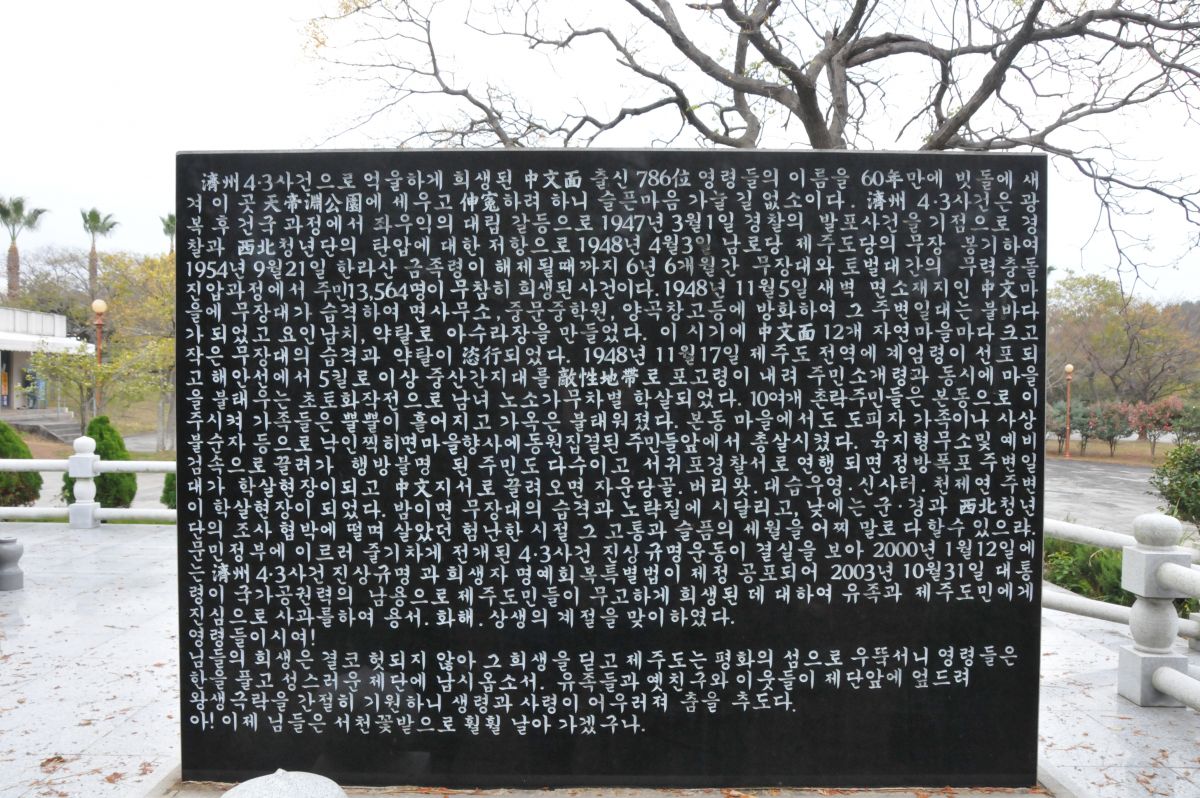 濟州 4·3사건으로 억울하게 희생된 中文面 출신 786位 영령들의 이름을 60年만에 빗돌에 새
겨 이 곳 天帝淵公園에 세우고 伸寃하려 하니 슬픈마음 가눌길 없소이다. 濟州 4·3사건은 광
복 후 건국 과정에서 좌우익의 대립 갈등으로 1947년 3월1일 경찰의 발포사건을 기점으로 경
찰과 西北청년단의 탄압에 대한 저항으로 1948년 4월3일 남로당 제주도당의 무장 봉기하여
1954년 9월21일 한라산 금족령이 해제될때까지 6년 6개월간 무장대와 토벌대간의 무력충돌
진압과정에서 주민13,564명이 무참히 희생된 사건이다. 1948년 11월5일 새벽 면소재지인 中文마
을에 무장대가 습격하여 면사무소, 중문중학원, 양곡창고등에 방화하여 그 주변일대는 불바다
가 되었고 요인납치, 약탈로 아수라장을 만들었다. 이 시기에 中文面 12개 자연마을마다 크고
작은 무장대의 습격과 약탈이 恣行되었다. 1948년 11월17일 제주도 전역에 계엄령이 선포되
고 해안선에서 5킬로 이상 중산간지대를 敵性地帶로 포고령이 내려 주민소개령과 동시에 마을
을 불태우는 초토화작전으로 남녀 노소가 무차별 학살되었다. 10여개 촌락주민들은 본동으로 이
주시켜 가족들은 뿔뿔이 흩어지고 가옥은 불태워졌다. 본동 마을에서도 도피자 가족이나 사상
불순자 등으로 낙인찍히면 마을향사에 동원집결된 주민들앞에서 총살시켰다. 유지형무소및 예비
검속으로 끌려가 행방불명 된 주민도 다수이고 서귀포경찰서로 연행 되면 정방폭포주변일
대가 학살현장이되고 中文지서로 끌려오면 자운당골. 버리왓. 대습우영. 신사터. 천제연 주변
이 학살현장이 되었다. 밤이면 무장대의 습격과 노략질에 시달리고, 낮에는 군·경과 西北청년
단의 조사협박에 떨며 살았던 험난한 시절 그 고통과 슬픔의 세월을 어찌 말로 다할수있으랴.
문민정부에 이르러 줄기차게 전개된 4·3사건 진상규명운동이 결실을 보아 2000년 1월12일에
는 濟州 4·3사건진상규명과 희생자 명예회복특별법이 제정 공포되어 2003년 10월31일 대통
령이 국가공권력의 남용으로 제주도민들이 무고하게 희생된 데 대하여 유족과 제주도민에게
진심으로 사과를하여 용서. 화해. 상생의 계절을 맞이하였다.
영령들이시여!
님들의 희생은 결코 헛되지 않아 그 희생을 딛고 제주도는 평화의 섬으로 우뚝서니 영령들은
한을 풀고 성스러운 제단에 납시옵소서. 유족들과 옛친구와 이웃들이 제단앞에 엎드려
왕생극락을 간절히 기원하니 생령과 사령이 어우러져 춤을 추도다.
아! 이제 님들은 서천꽃밭으로 훨훨 날아가겠구나.